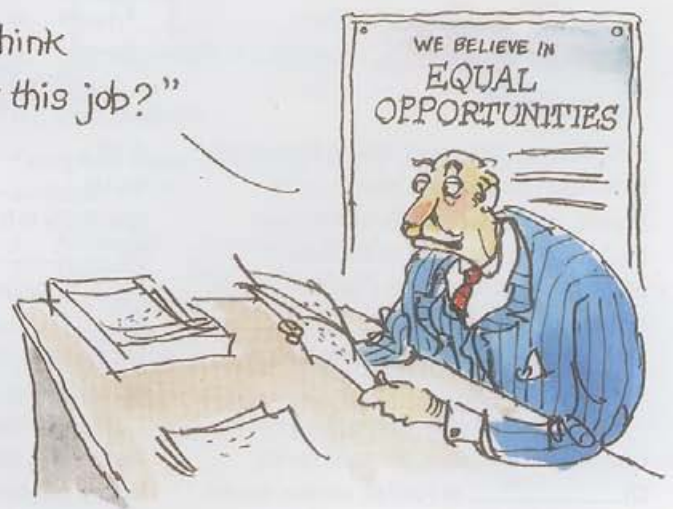 think
this job?"
WE BELIEVE IN
EQUAL
OPPORTUNITIES